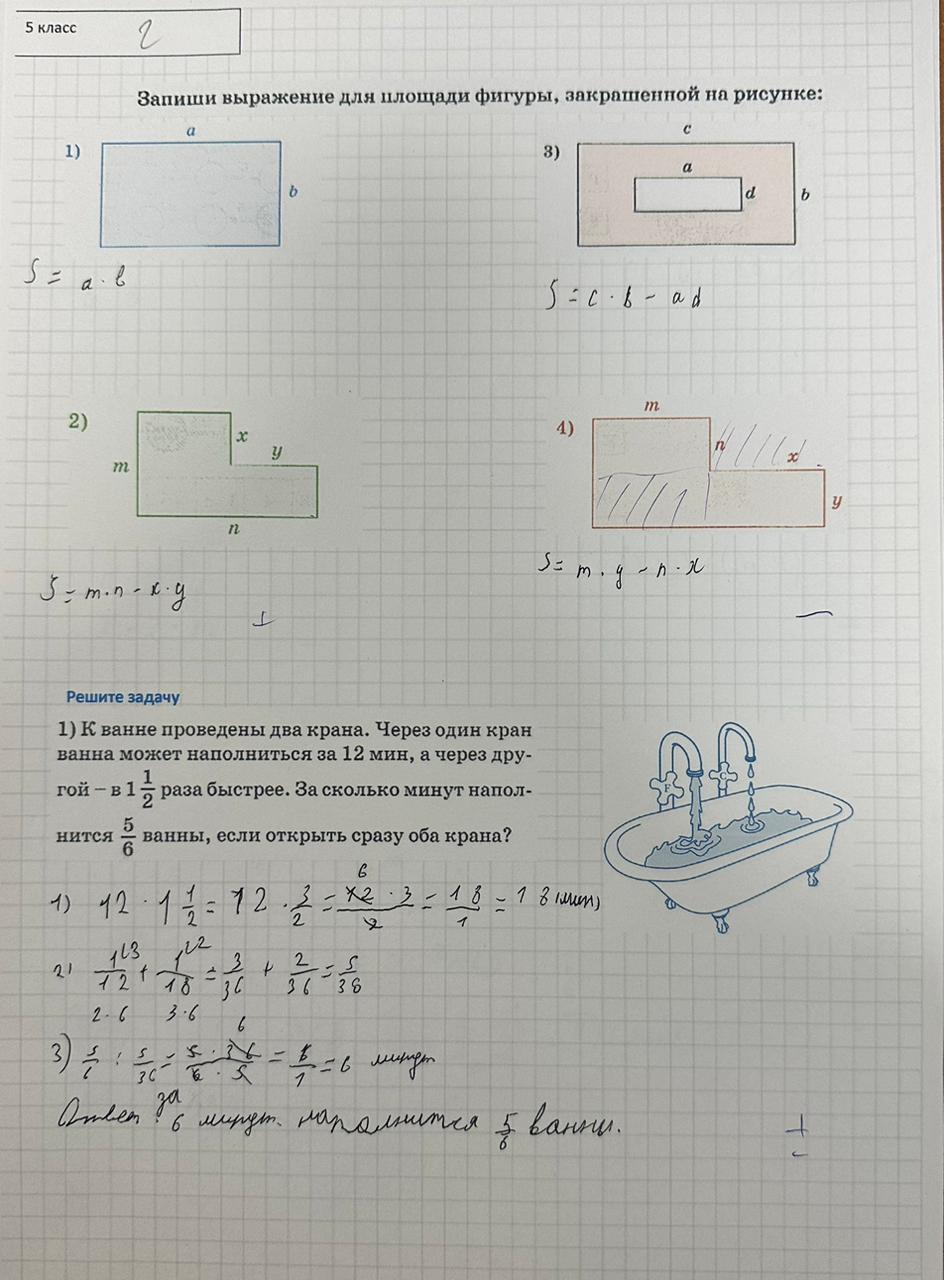 5 класс 2
Запиши выражение для площади фигуры, закрашенной на рисунке:
1) a b
S = a · b
3) c a d b
S = c · b - ad
2) x y m n
S = m·n - x·y
4) m n x y
S = m·y - n·x
Решите задачу
1) К ванне проведены два крана. Через один кран
ванна может наполниться за 12 мин, а через дру-
гой – в 1 1/2 раза быстрее. За сколько минут напол-
нится 5/6 ванны, если открыть сразу оба крана?
F C
1) 12 · 1 1/2 = 12 · 3/2 = 12 · 3/2 = 18/1 = 18 (мин)
6
2) 1/12 + 1/18 = 3/36 + 2/36 = 5/38
2·6 3·6
3) 5/6 : 5/36 = 5 · 36/6 · 5 = 6/1 = 6 минут
6
Ответ: за 6 минут наполнится 5/6 ванны.